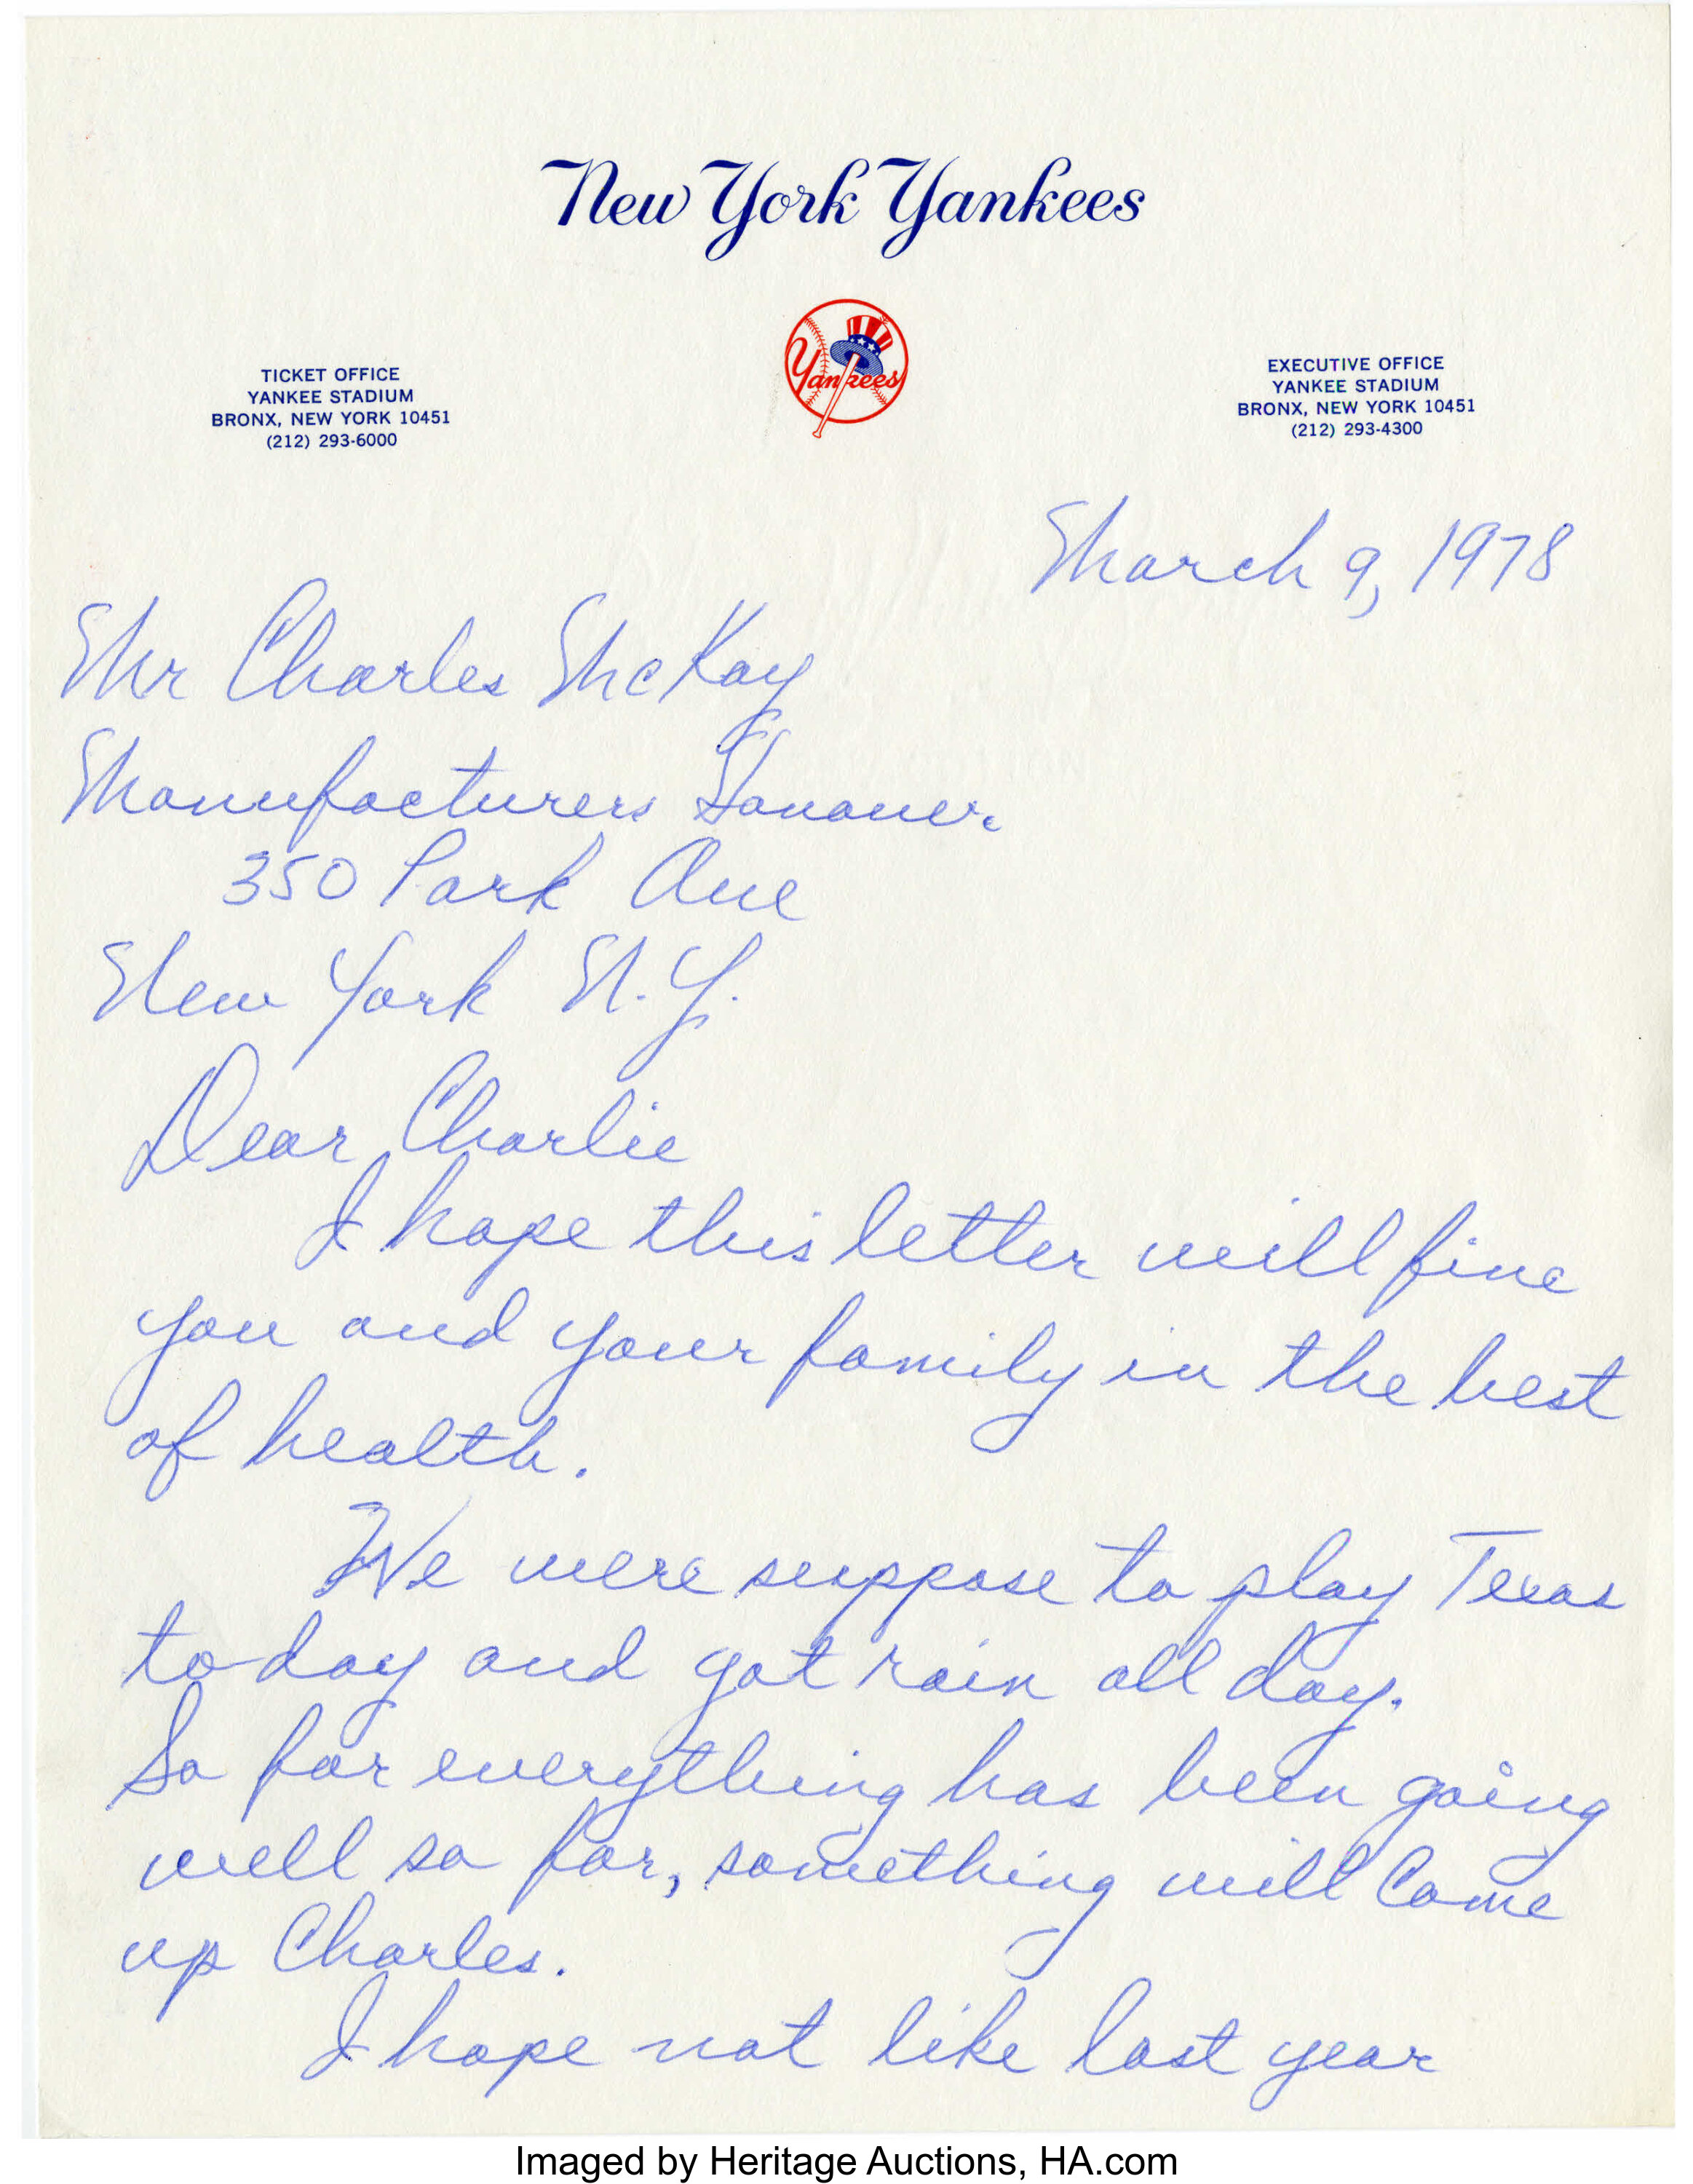 New York Yankees
Yankees
TICKET OFFICE
YANKEE STADIUM
BRONX, NEW YORK 10451
(212) 293-6000
EXECUTIVE OFFICE
YANKEE STADIUM
BRONX, NEW YORK 10451
(212) 293-4300
March 9, 1978
Mr Charles McKay
Manufacturers Hanover.
350 Park Ave
New York N.Y.
Dear Charlie
I hope this letter will fine
you and your family in the best
of health.
We were suppose to play Texas
to day and got rain all day.
So far everything has been going
well so far, something will Come
up Charles.
I hope not like last year
Imaged by Heritage Auctions, HA.com